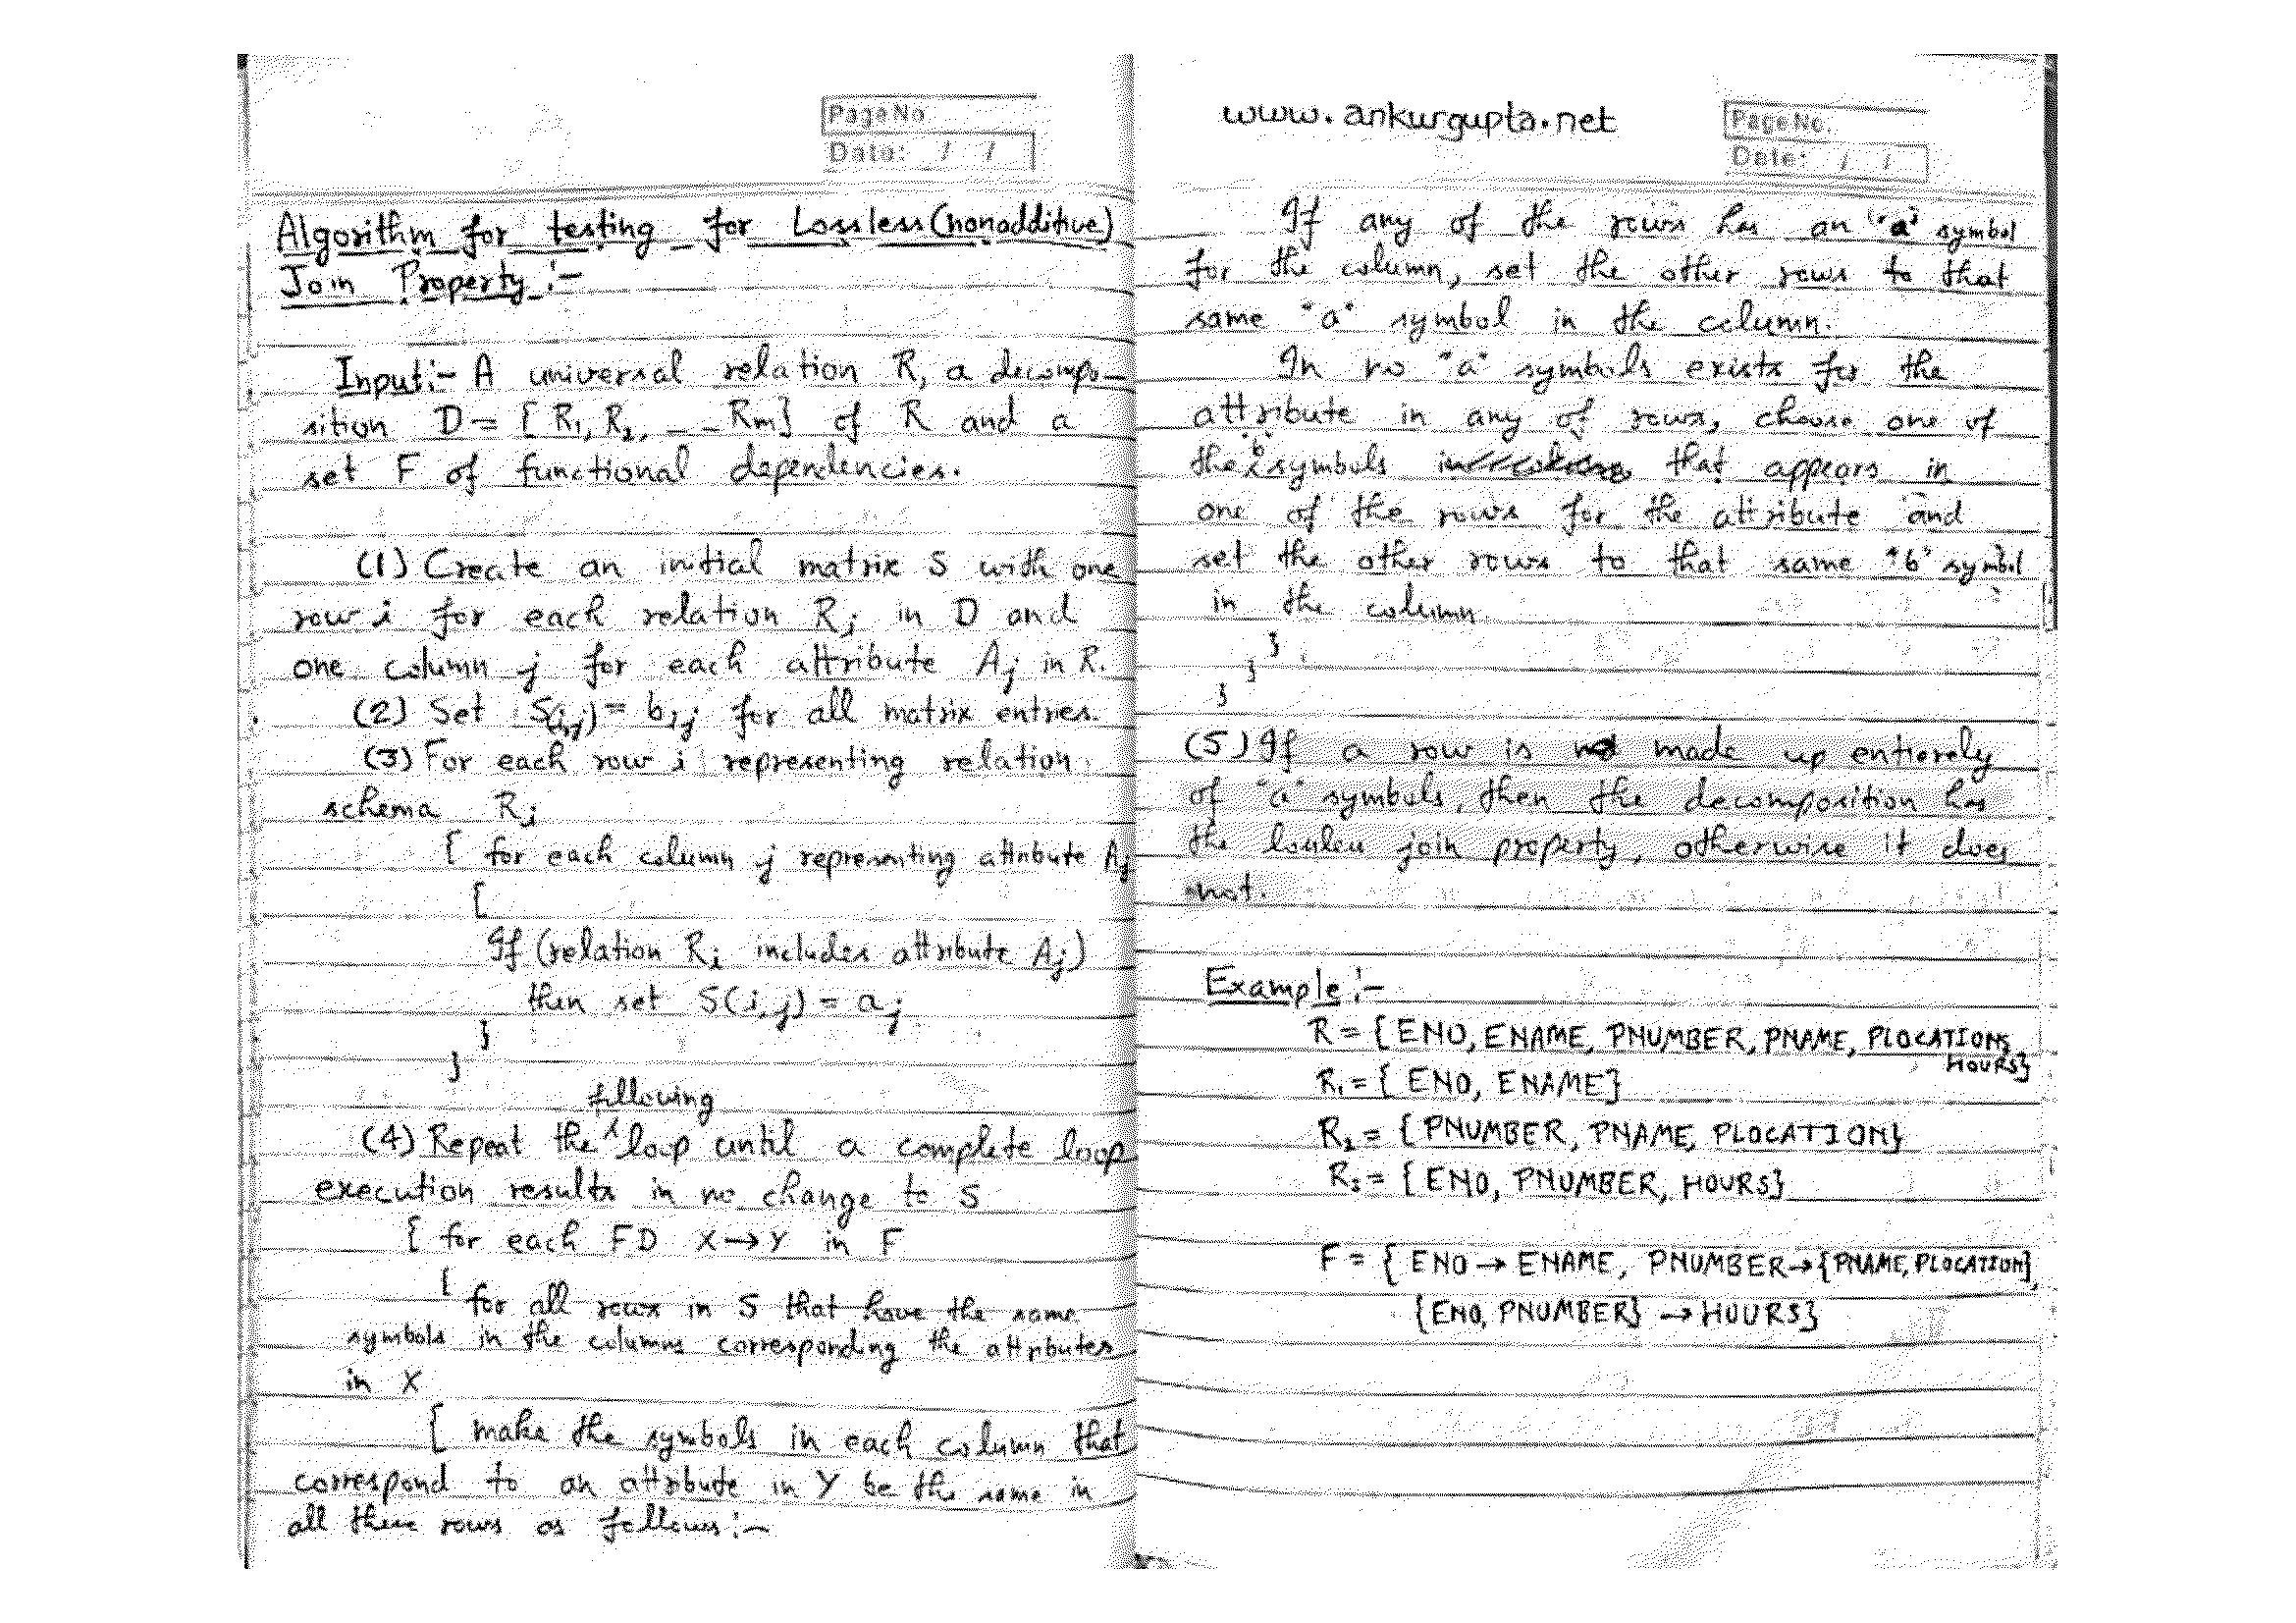 Page No
Date: / /
Algorithm for testing for Lossless (nonadditive)
Join Property :-
Input:- A universal relation R, a decompo-
sition D = { R1, R2, - - Rm} of R and a
set F of functional dependencies.
(1) Create an initial matrix S with one
row i for each relation Ri in D and
one column j for each attribute Aj in R.
(2) Set S(i,j) = bij for all matrix entries.
(3) For each row i representing relation
schema Ri
{ for each column j representing attribute Aj
{
If (relation Ri includes attribute Aj)
then set S(i,j) = aj
}
}
following
(4) Repeat the loop until a complete loop
execution results in no change to S
{ for each FD X→Y in F
{ for all rows in S that have the same
symbols in the columns corresponding the attributes
in X
{ make the symbols in each column that
correspond to an attribute in Y be the same in
all these rows as follows:-
www.ankurgupta.net
Page No.
Date: / /
If any of the rows has an "a" symbol
for the column, set the other rows to that
same "a" symbol in the column.
In no "a" symbols exists for the
attribute in any of rows, choose one of
the "b" symbols that appears in
one of the rows for the attribute and
set the other rows to that same "b" symbol
in the column.
}
}
}
(5) If a row is made up entierely
of "a" symbols, then the decomposition has
the lossless join property, otherwise it does
not.
Example :-
R = { ENO, ENAME, PNUMBER, PNAME, PLOCATION,
HOURS}
R1 = { ENO, ENAME}
R2 = { PNUMBER, PNAME, PLOCATION}
R3 = { ENO, PNUMBER, HOURS}
F = { ENO → ENAME, PNUMBER → {PNAME, PLOCATION},
{ENO, PNUMBER} → HOURS}